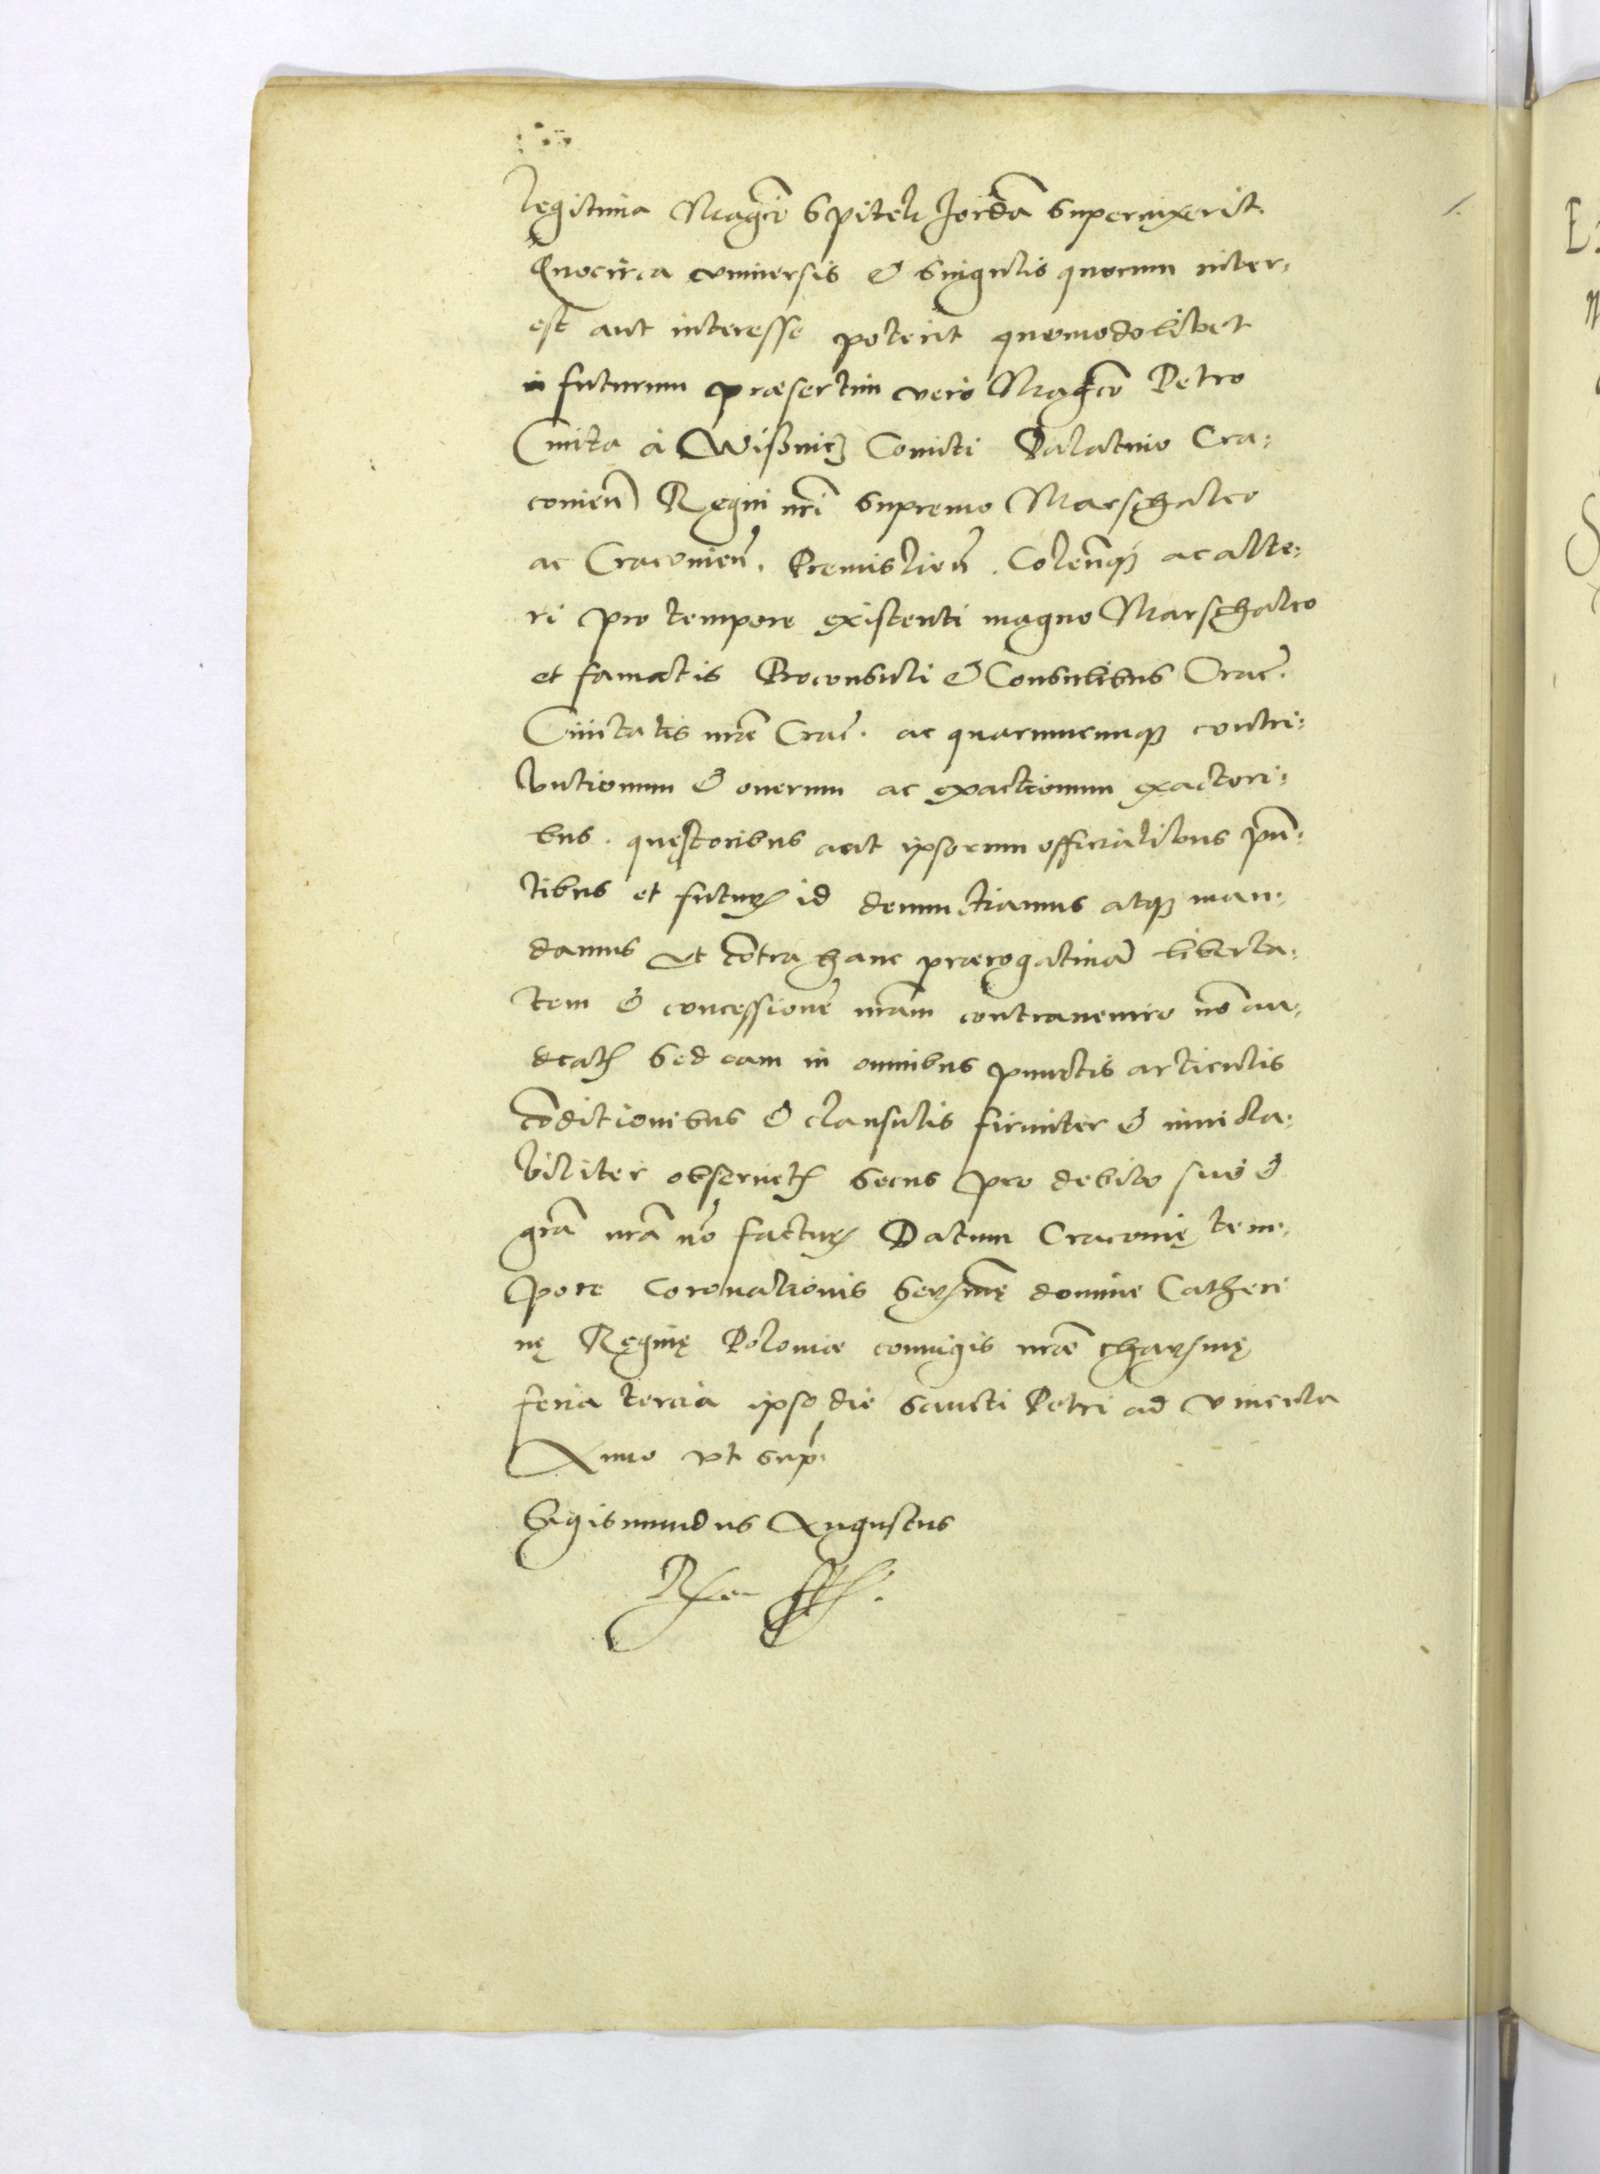 legitima Magco Spitek Jordā superuixerit.
Quocirca vniuersis & singulis quorum inter:
est aut interesse poterit quomodolibet
in futurum præsertim vero Magco Petro
Cmita à Wisznicz Comiti Palatino Cra:
couien̄ Regni nr̄i supremo Marschalco
ac Cracouien̄. Premislien̄. Colen̄q̄ ac alte:
ri pro tempore existenti magno Marschalco
et famatis Proconsuli & Consulibus Crac̄.
Ciuitatis nræ Crac̄. ac quarumcumq̄ contri:
butionum & onerum ac exactionum exactori:
bus. quęstoribus aut ipsorum officialibus pn̄:
tibus et futur̄ id denunctiamus atq̄ man:
damus vt cōtra hanc prærogatiuā liberta:
tem & concessionē nram̄ contrauenire nō au:
deat̄ sed eam in omnibus punctis articulis
cōditionibus & clausulis firmiter & inuiola:
biliter obseruet̄ secus pro debito suo &
grā nrā nō factur̄ Datum Cracouię tem:
pore Coronationis Serꝰmę dominę Catheri
nę Reginę Poloniæ coniugis nræ charꝰmę
feria tercia ipso die sancti Petri ad vincula
Anno vt supr̄.
Sigismundus Augustus
Rex sst.